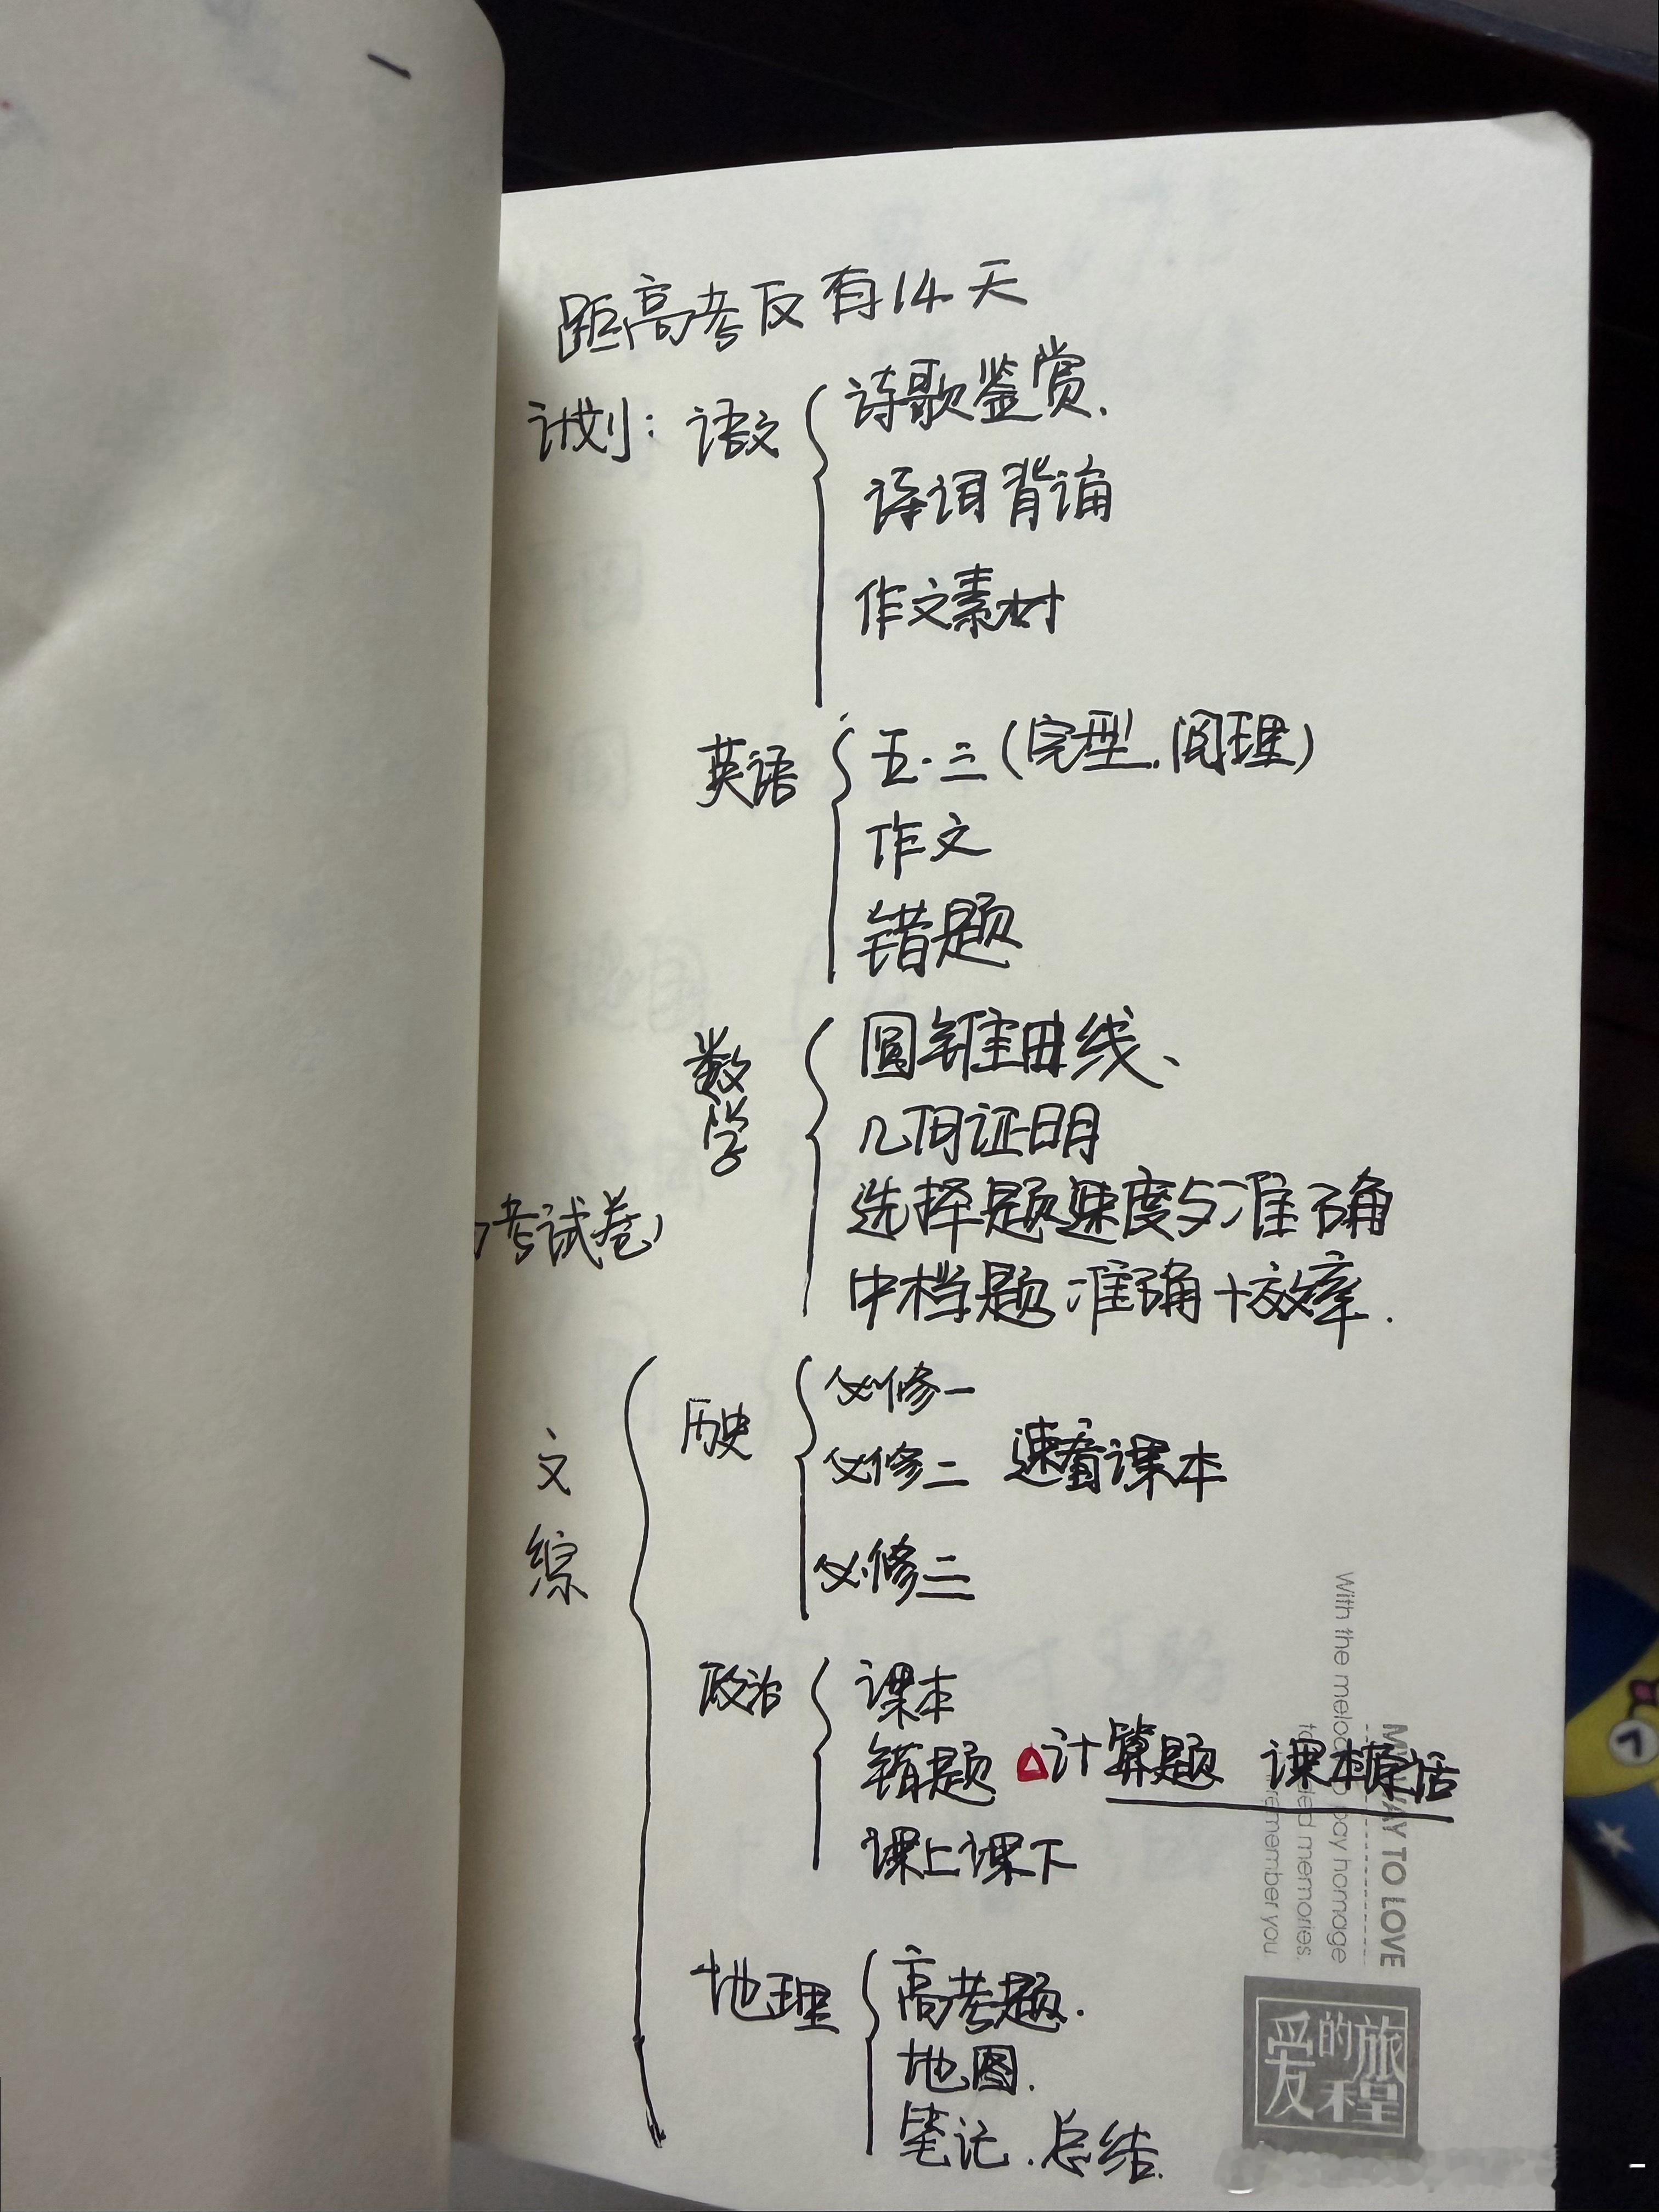 距高考仅有14天
计划: 语文 诗歌鉴赏.
诗词背诵
作文素材
英语 五·三(完型.阅理)
作文
错题
数学 圆锥曲线、
几何证明
选择题速度与准确
考试卷)
中档题准确+效率.
文综
历史 必修一
必修二 速看课本
必修三
政治 课本
错题 △计算题 课本原话
课上课下
地理 高考题.
地图.
笔记.总结.
MY WAY TO LOVE
With the melody pay homage
memories.
remember you
爱的旅程